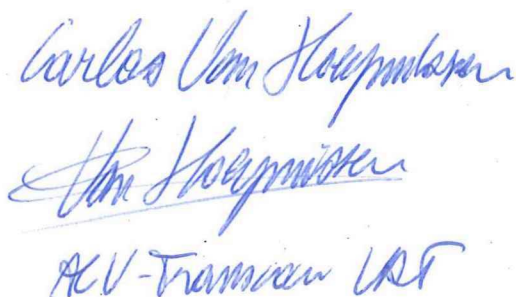 Carlos Van Hoeymissen
Van Hoeymissen
ACV-Transcom VRT